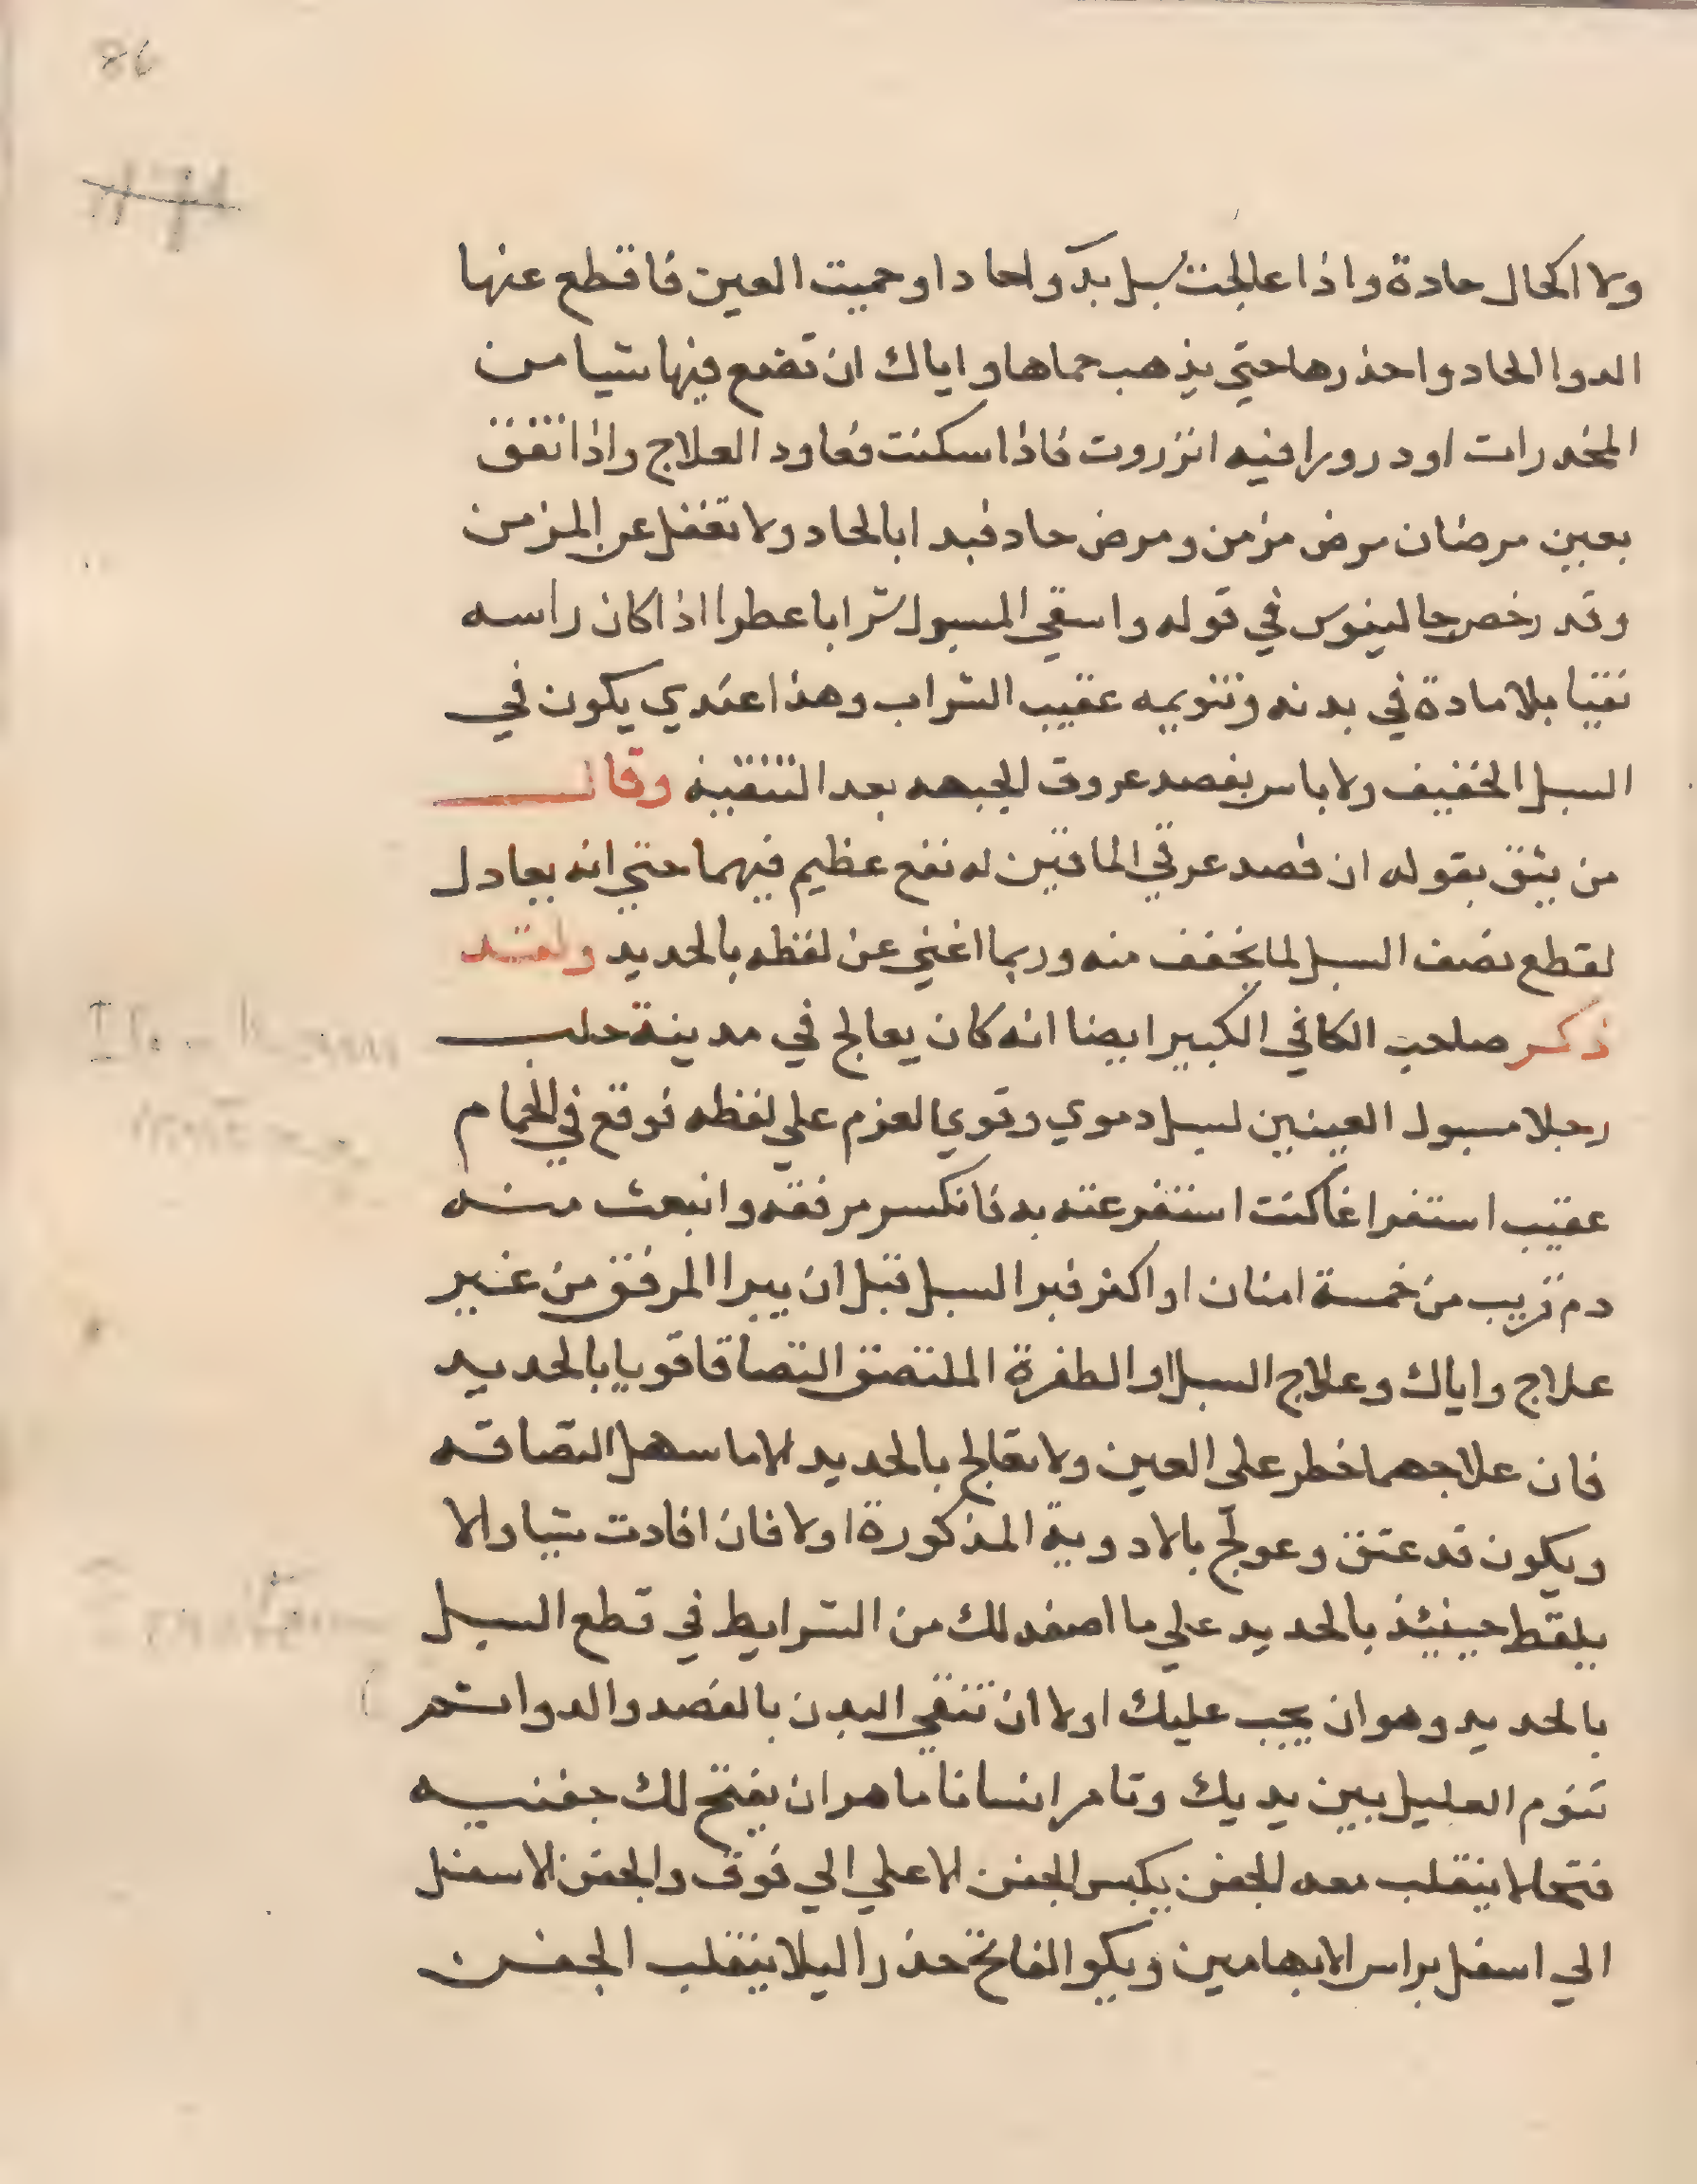 86
ولا اكحال حادة واذا عالجت سبل بدوا حادا وحميت العين فاقطع عنها
الدوا الحاد واحذرها حتي يذهب حماها واياك ان تضع فيها شيا من
المخدرات او درورا فيه انزروت فاذا سكنت فعاود العلاج واذا اتفق
بعين مرضان مرض مزمن ومرض حاد فبدا بالحاد ولا تغفل عن المزمن
وقد رخص جالينوس في قوله واسقي المسبول شرابا عطرا اذا كان راسه
نقيا بلا مادة في بدنه وتنويمه عقيب الشراب وهذا عندي يكون في
السبل الخفيف ولا باس بفصد عروق الجبهه بعد التنقيه وقال
من يثق بقوله ان فصد عرقي الماقين له نفع عظيم فيهما حتي انه يعادل
لقطع نصف السبل لما يخفف منه وربما اغني عن لقطه بالحديد ولقد
ذكر صاحب الكافي الكبير ايضا انه كان يعالج في مدينة حلب
رجلا مسبول العينين لسبل دموي وقوي العزم علي لقطه فوقع في الحمام
عقيب استفراغا كنت استفرغته به فانكسر مرفقه وانبعث منه
دم قريب من خمسة امنان او اكثر فبرا السبل قبل ان يبرا المرفق من غير
علاج واياك وعلاج السبل او الظفرة الملتصق التصاقا قويا بالحديد
فان علاجهما خطر علي العين ولا تعالج بالحديد الا ما سهل التصاقه
ويكون قد عتق وعولج بالادوية المذكورة اولا فان افادت شيا والا
يلقط حينئذ بالحديد علي ما اصفه لك من الشرايط في قطع السبل
بالحديد وهو ان يجب عليك اولا ان تنقي البدن بالفصد والدوا ثم
تنوم العليل بين يديك وتامر انسانا ماهرا ان يفتح لك جفنيه
فتحا لا ينقلب معه الجفن يكبس الجفن الاعلي الي فوق والجفن الاسفل
الي اسفل براس الابهامين ويكو الفاتح حذرا ليلا ينقلب الجفن